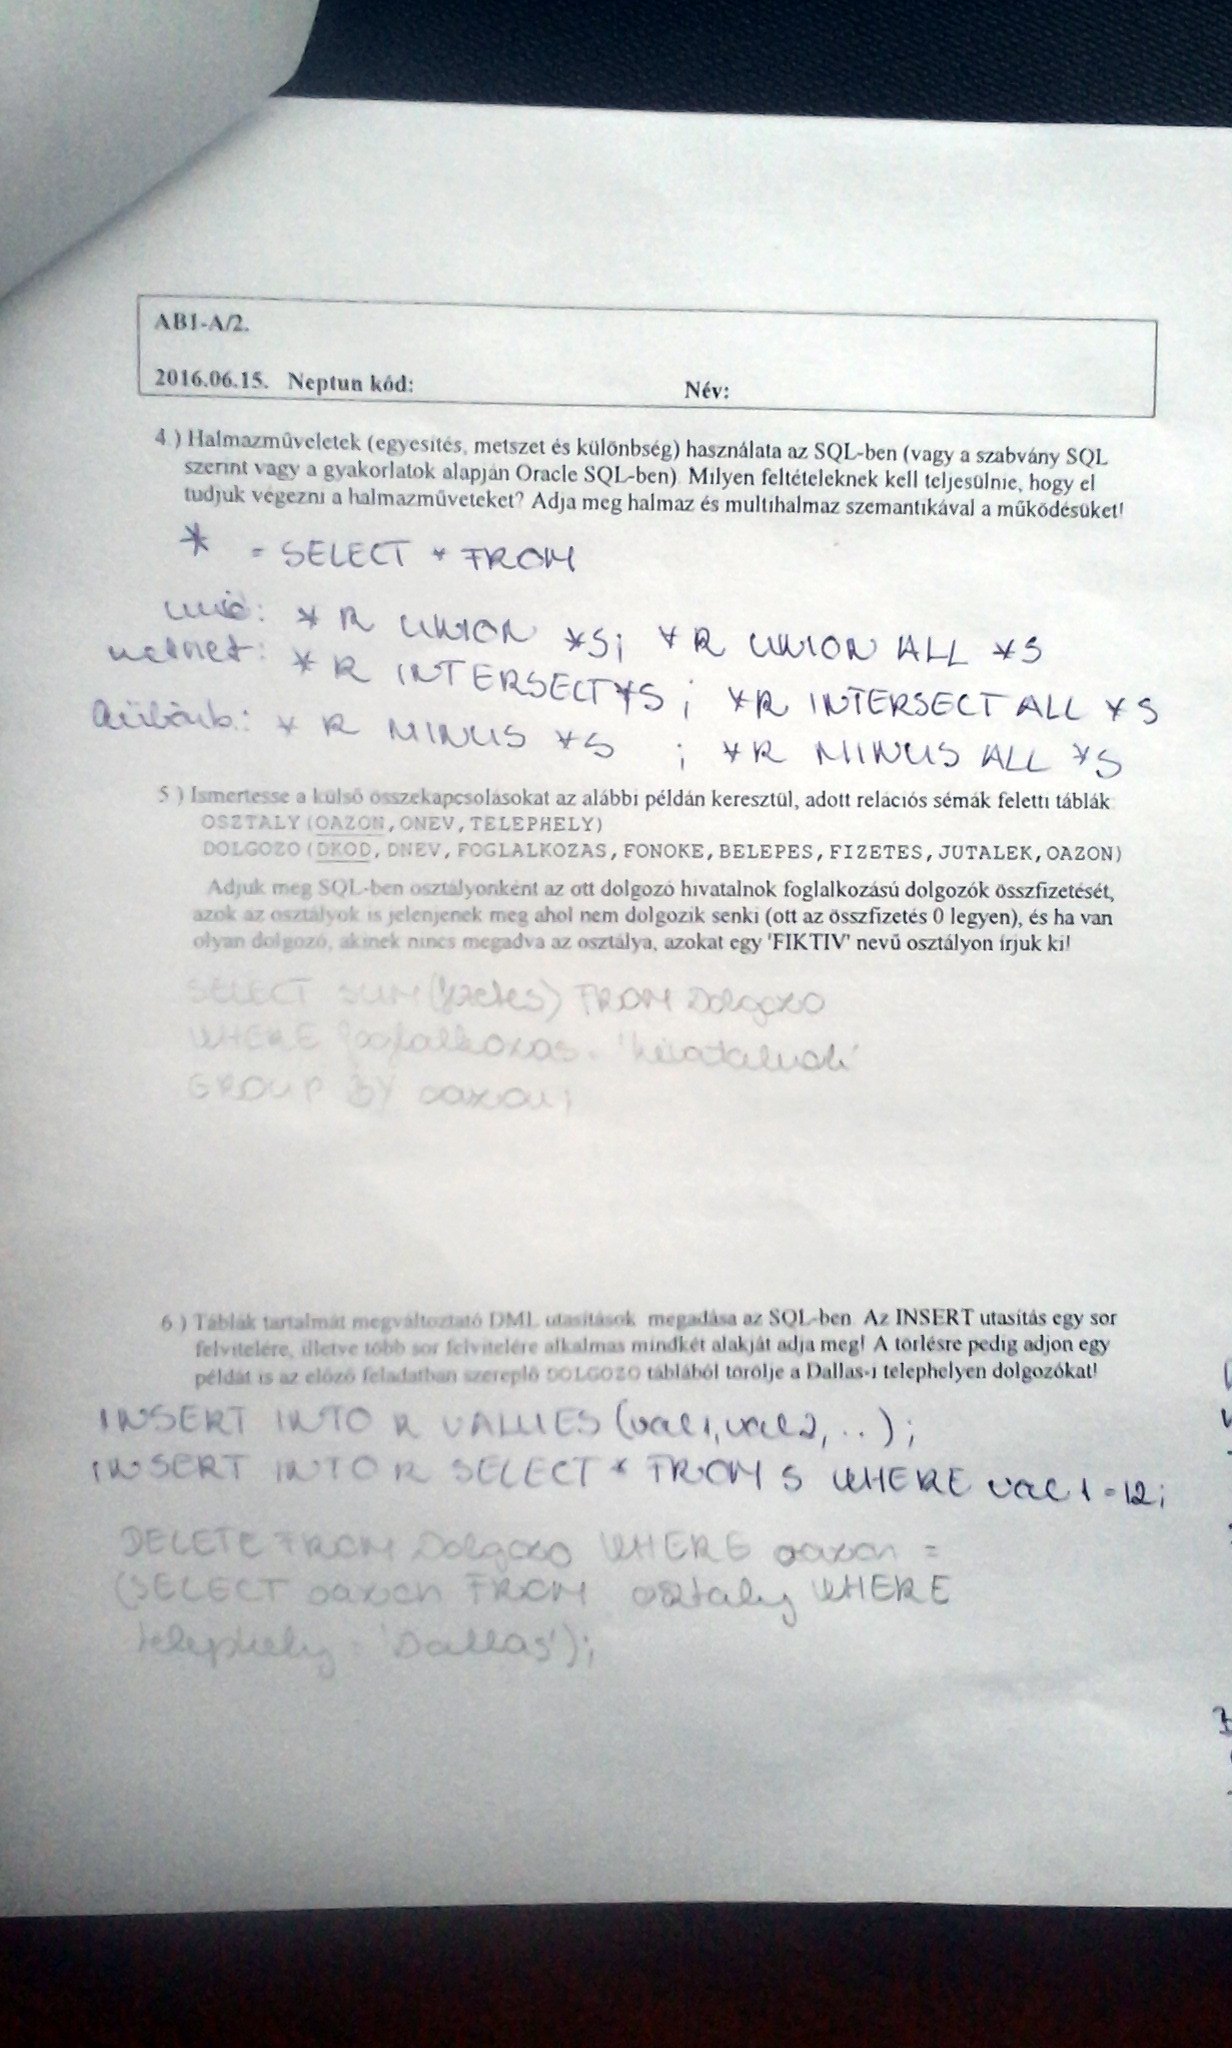 AB1-A/2.
2016.06.15. Neptun kód: Név:
4.) Halmazműveletek (egyesítés, metszet és különbség) használata az SQL-ben (vagy a szabvány SQL
szerint vagy a gyakorlatok alapján Oracle SQL-ben). Milyen feltételeknek kell teljesülnie, hogy el
tudjuk végezni a halmazműveteket? Adja meg halmaz és multihalmaz szemantikával a működésüket!
* = SELECT * FROM
unió: * R UNION * S; * R UNION ALL * S
metszet: * R INTERSECT * S ; * R INTERSECT ALL * S
különb.: * R MINUS * S ; * R MINUS ALL * S
5.) Ismertesse a külső összekapcsolásokat az alábbi példán keresztül, adott relációs sémák feletti táblák
OSZTALY(OAZON,ONEV,TELEPHELY)
DOLGOZO(DKOD,DNEV,FOGLALKOZAS,FONOKE,BELEPES,FIZETES,JUTALEK,OAZON)
Adjuk meg SQL-ben osztályonként az ott dolgozó hivatalnok foglalkozású dolgozók összfizetését,
azok az osztályok is jelenjenek meg ahol nem dolgozik senki (ott az összfizetés 0 legyen), és ha van
olyan dolgozó, akinek nincs megadva az osztálya, azokat egy 'FIKTIV' nevű osztályon írjuk ki!
SELECT SUM(fizetes) FROM Dolgozo
WHERE foglalkozas = 'hivatalnok'
GROUP BY oazon;
6.) Táblák tartalmát megváltoztató DML utasítások megadása az SQL-ben. Az INSERT utasítás egy sor
felvitelére, illetve több sor felvitelére alkalmas mindkét alakját adja meg! A törlésre pedig adjon egy
példát is az előző feladatban szereplő DOLGOZO táblából törölje a Dallas-i telephelyen dolgozókat!
INSERT INTO R VALUES (val1, val2, ..);
INSERT INTO R SELECT * FROM S WHERE val1 = 12;
DELETE FROM Dolgozo WHERE oazon =
(SELECT oazon FROM osztaly WHERE
telephely = 'Dallas');